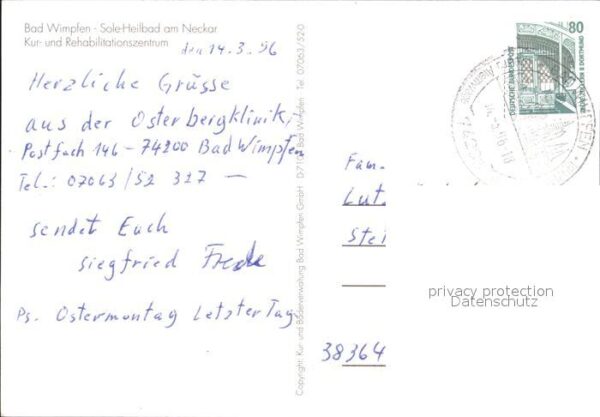 Bad Wimpfen - Sole-Heilbad am Neckar
Kur- und Rehabilitationszentrum
den 14.3.96
Herzliche Grüsse
aus der Osterbergklinik,
Postfach 146 - 74200 Bad Wimpfen
Tel.: 07063/52 317 —
sendet Euch
siegfried
Ps. Ostermontag Letzter Tag
Copyright: Kur- und Bäderverwaltung Bad Wimpfen GmbH Bad Wimpfen Tel. 07063/520
80
DEUTSCHE BUNDESPOST
ZECHE ZOLLERN II DORTMUND
Fam.
Lut
Stei
38364
privacy protection
Datenschutz